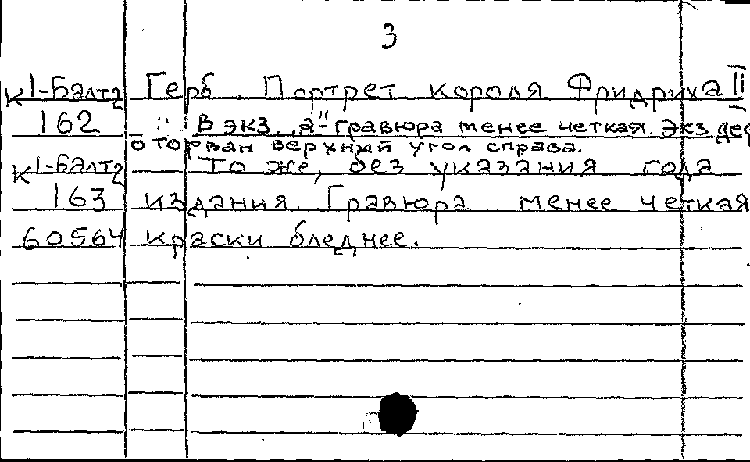 3
К1-Балт2 Герб. Портрет короля Фридриха II
162 В экз. "а"-гравюра менее четкая. Экз деф
оторван верхний угол справа.
К1-Балт2 То же, без указания года
163 издания. Гравюра менее четкая
60564 краски бледнее.